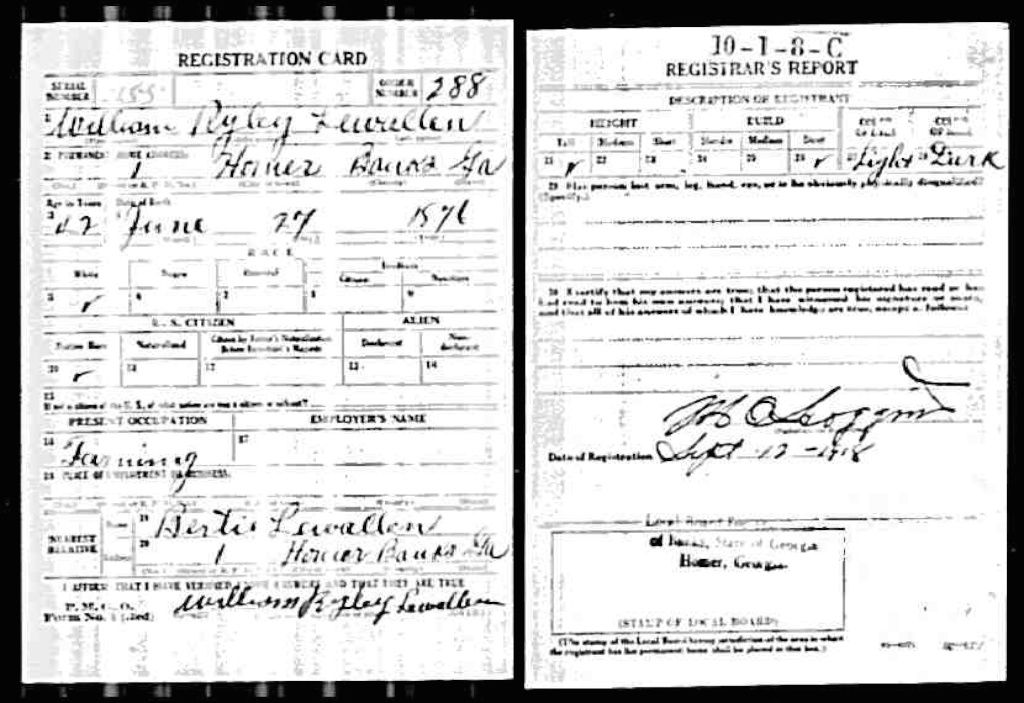 REGISTRATION CARD
SERIAL NUMBER 155 ORDER NUMBER 288
1 William Ryley Lewallen
2 PERMANENT HOME ADDRESS:
1 Homer Banks Ga
Age in Years Date of Birth
3 42 June 27 1876
RACE
White Negro Oriental Indian
Citizen Noncitizen
5 ✓ 6 7 8 9
U. S. CITIZEN ALIEN
Native Born Naturalized Citizen by Father's Naturalization Before Registrant's Majority Declarant Non-declarant
10 ✓ 11 12 13 14
15
If not a citizen of the U. S., of what nation are you a citizen or subject?
PRESENT OCCUPATION EMPLOYER'S NAME
16 Farming 17
18 PLACE OF EMPLOYMENT OR BUSINESS:
NEAREST RELATIVE
Name 19 Bertie Lewallen
Address 20 1 Homer Banks Ga
I AFFIRM THAT I HAVE VERIFIED ABOVE ANSWERS AND THAT THEY ARE TRUE
P. M. G. O.
Form No. 1 (Red) William Ryley Lewallen
10-1-8-C
REGISTRAR'S REPORT
DESCRIPTION OF REGISTRANT
HEIGHT BUILD COLOR OF EYES COLOR OF HAIR
Tall Medium Short Slender Medium Stout
21 ✓ 22 23 24 25 26 ✓ 27 Light 28 Dark
29 Has person lost arm, leg, hand, eye, or is he obviously physically disqualified?
(Specify.)
30 I certify that my answers are true; that the person registered has read or has
had read to him his own answers; that I have witnessed his signature or mark,
and that all of his answers of which I have knowledge are true, except as follows:
Date of Registration Sept 12 - 1918
Local Board for
of Banks, State of Georgia
Homer, Georgia.
(STAMP OF LOCAL BOARD)
(The stamp of the Local Board having jurisdiction of the area in which
the registrant has his permanent home shall be placed in this box.)